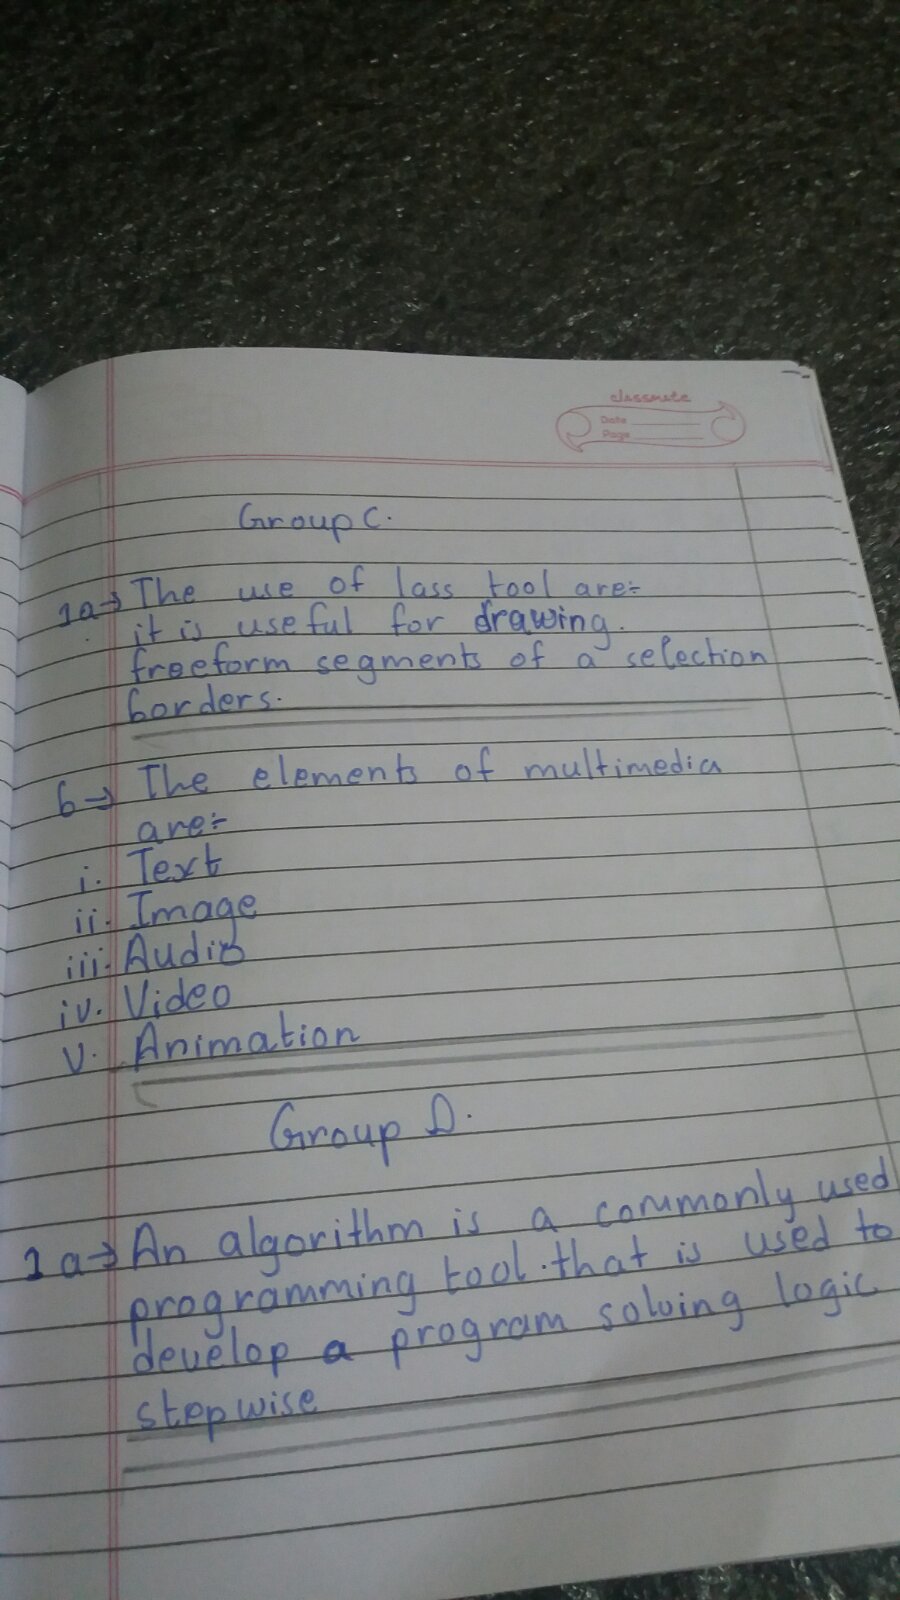 classmate
Date
Page
Group C.
1a→ The use of lass tool are:-
it is useful for drawing.
freeform segments of a selection
borders.
b→ The elements of multimedia
are:-
i. Text
ii. Image
iii. Audio
iv. Video
v. Animation
Group D.
1 a→ An algorithm is a commonly used
programming tool.that is used to
develop a program solving logic
stepwise